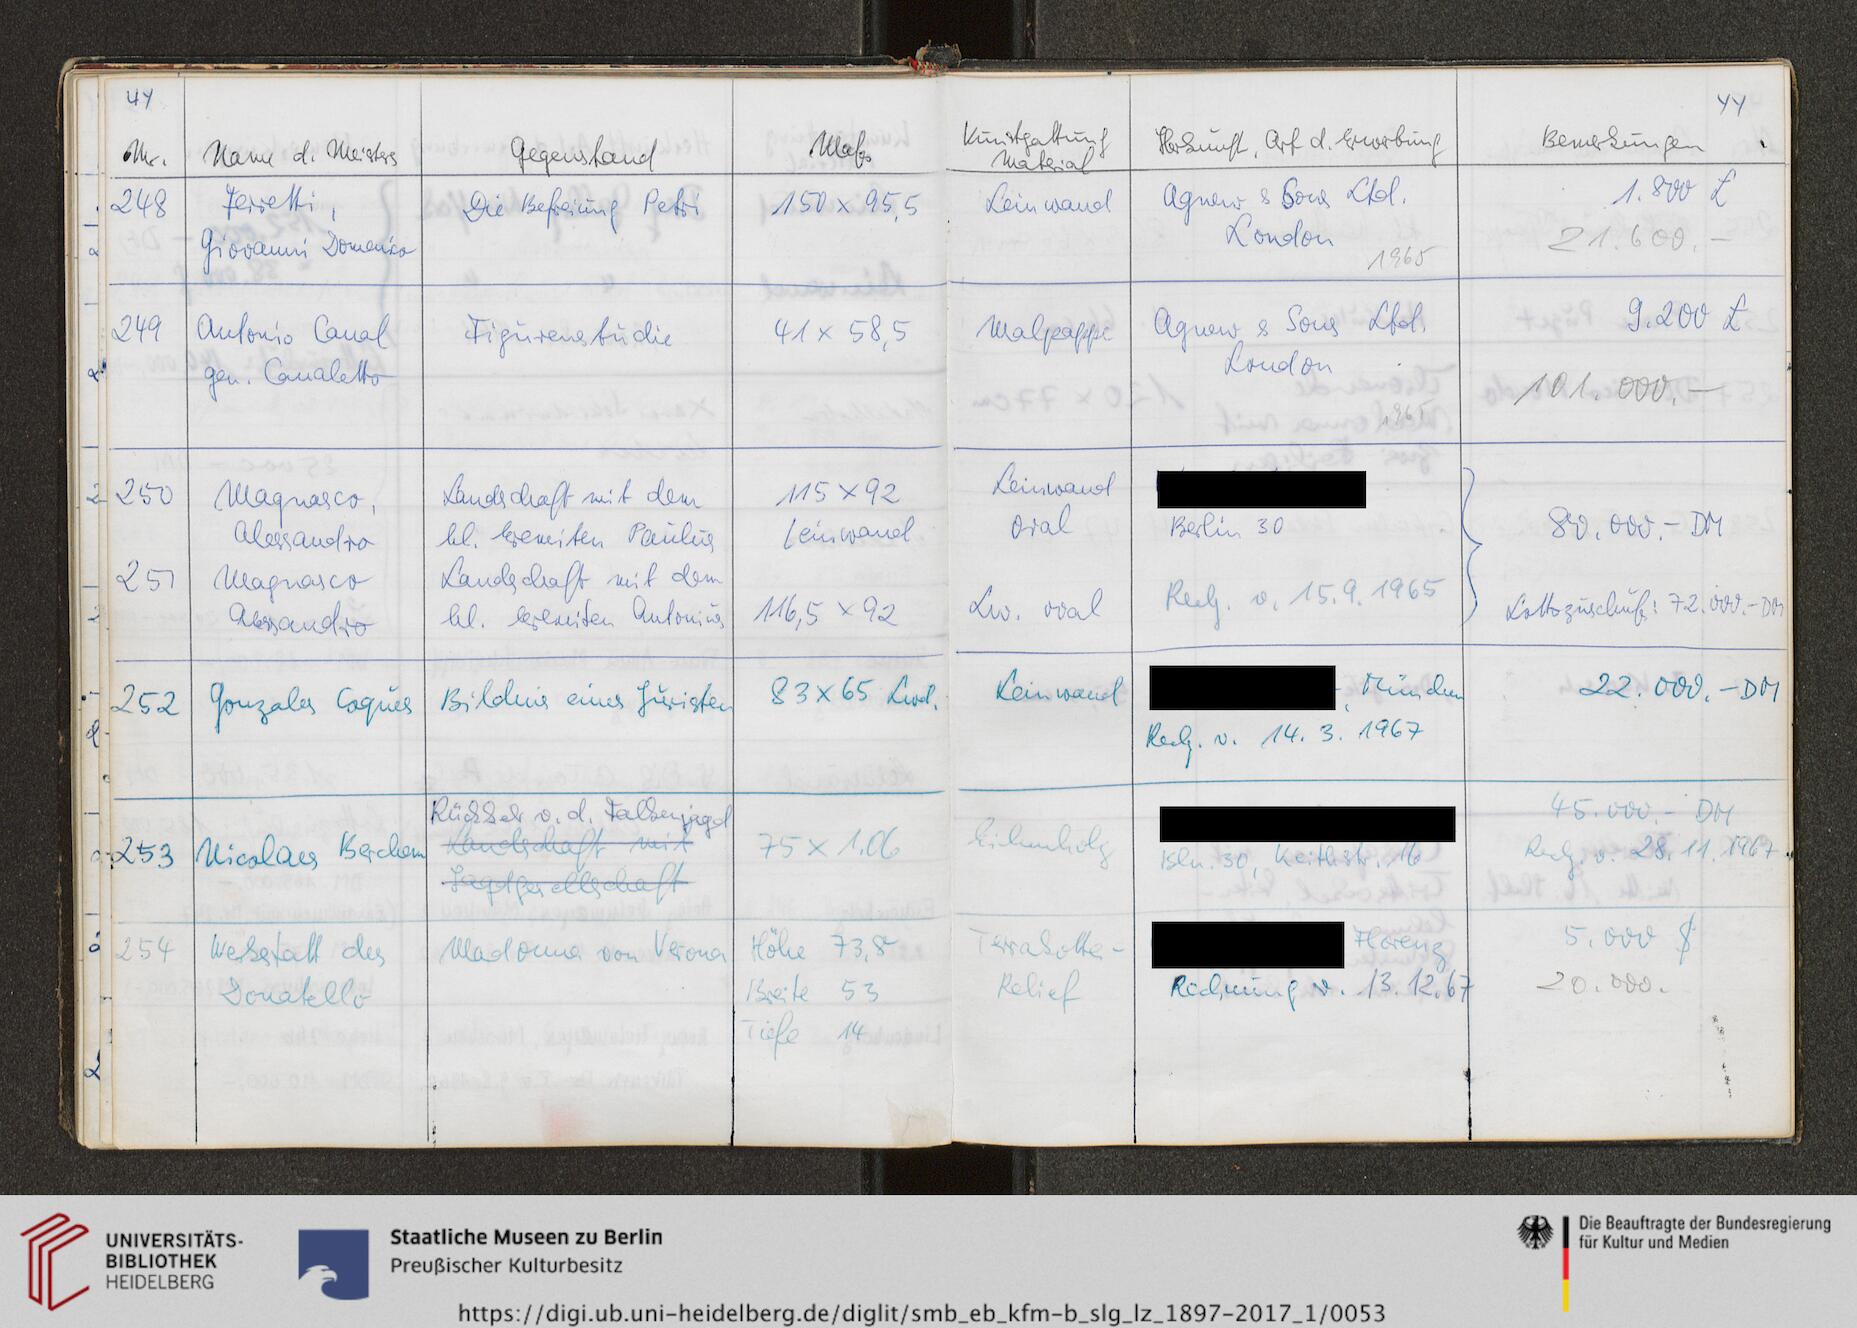 44
44
Nr. Name d. Meisters Gegenstand Maße Kunstgattung Material Herkunft, Art d. Erwerbung Bemerkungen
248 Ferretti, Die Befreiung Petri 150 x 95,5 Leinwand Agnew & Sons Ltd. 1.800 £
Giovanni Domenico London 21.600.-
1965
249 Antonio Canal Figurenstudie 41 x 58,5 Malpappe Agnew & Sons Ltd. 9.200 £
gen. Canaletto London 101.000.-
1965
250 Magnasco, Landschaft mit dem 115 x 92 Leinwand
Alessandro hl. Eremiten Paulus Leinwand oval Berlin 30 80.000.- DM
251 Magnasco Landschaft mit dem
Alessandro hl. Eremiten Antonius 116,5 x 92 Lw. oval Rechg. v. 15.9.1965 Lottozuschuß: 72.000.- DM
252 Gonzales Coques Bildnis eines Juristen 83 x 65 Lwd. Leinwand , München 22.000.- DM
Rechg. v. 14.3.1967
Rückkehr v. d. Falkenjagd 45.000.- DM
253 Nicolaes Berchem Landschaft mit 75 x 1,06 Eichenholz Bln. 30, Keithstr. 16 Rechg. v. 28.11.1967
Jagdgesellschaft
254 Werkstatt des Madonna von Verona Höhe 73,8 Terrakotta- Florenz 5.000 $
Donatello Breite 53 Relief Rechnung v. 13.12.67 20.000.
Tiefe 14
UNIVERSITÄTS-
BIBLIOTHEK
HEIDELBERG
Staatliche Museen zu Berlin
Preußischer Kulturbesitz
Die Beauftragte der Bundesregierung
für Kultur und Medien
https://digi.ub.uni-heidelberg.de/diglit/smb_eb_kfm-b_slg_lz_1897-2017_1/0053